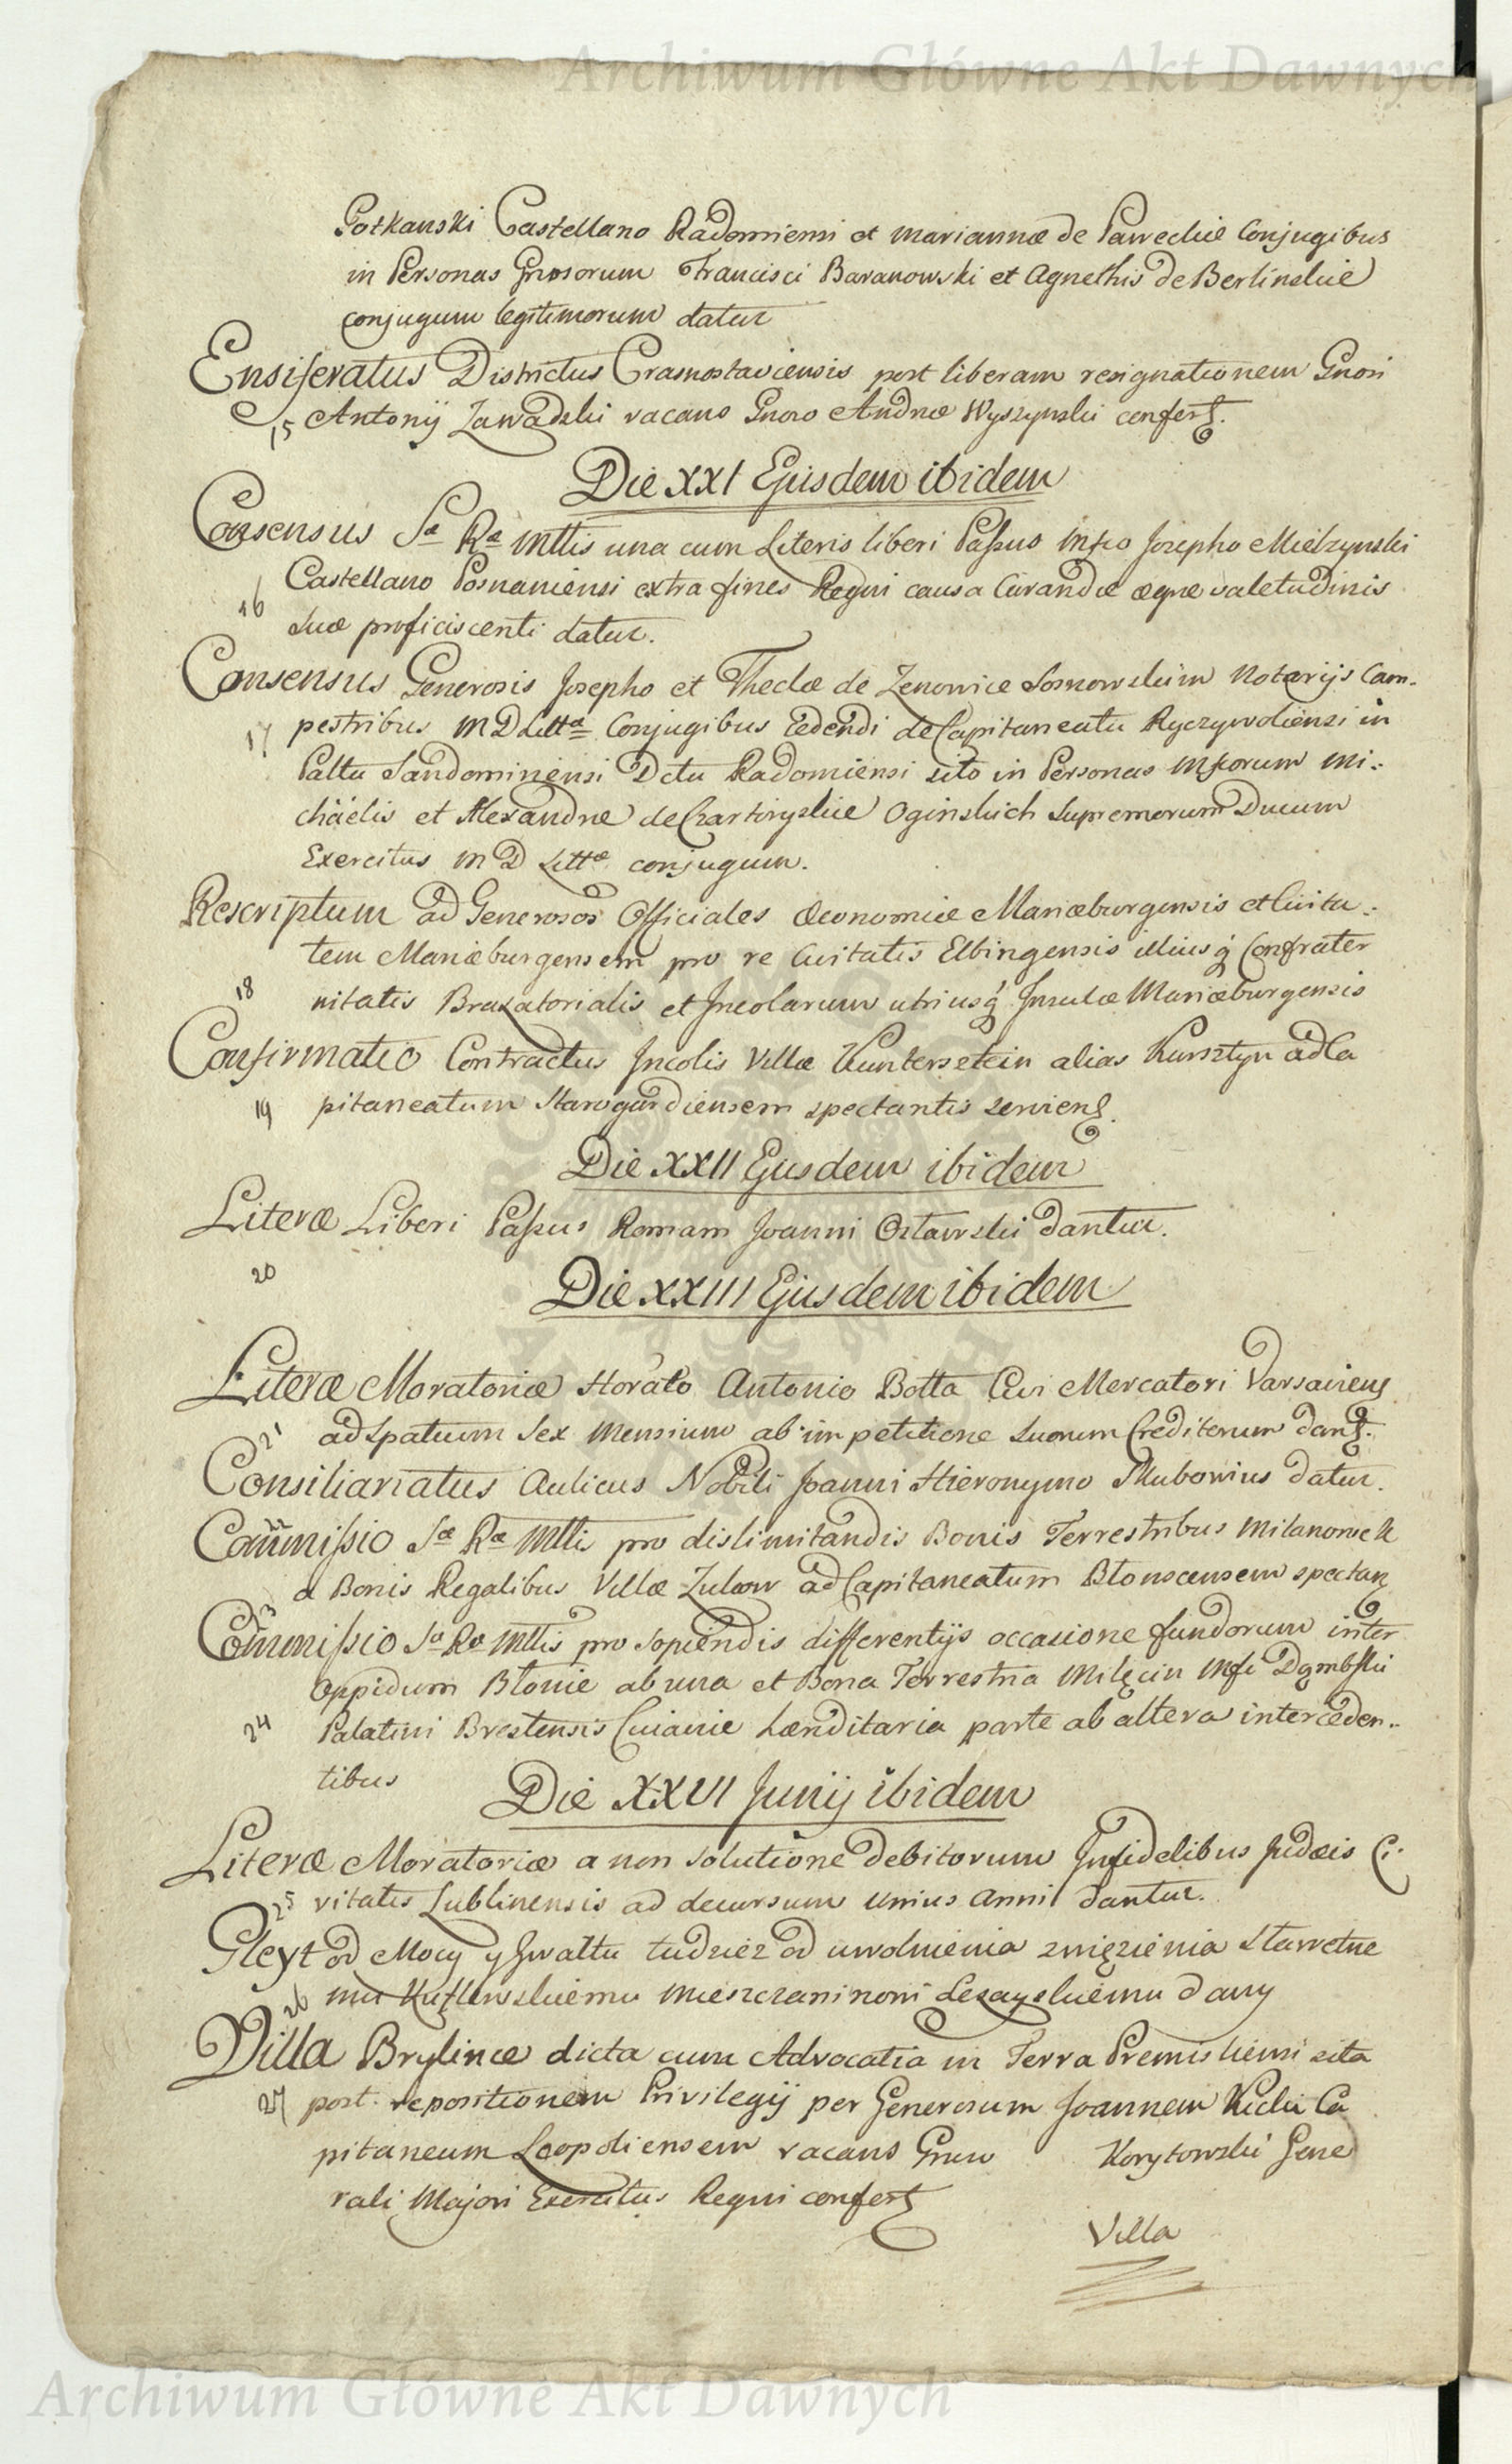 Archiwum Główne Akt Dawnych
Potkanski Castellano Radomiensi et Mariannæ de Conjugibus
in Personas Gnosorum Francisci Baranowski et Agnethis de Berlinskie
conjugum legitimorum datur
Ensiferatus Districtus Crasnostaviensis post liberam resignationem Gnosi
15 Antonij Zawadzki vacans Gnoso Andreæ Wyszynski confert.
Die XXI Ejusdem ibidem
Consensus Sæ Ræ Mttis una cum Literis liberi Passus Mfco Josepho Mielzynski
16 Castellano Posnaniensi extra fines Regni causa Curandæ ægræ valetudinis
suæ proficiscenti datur.
Consensus Generosis Josepho et Theclæ de Zenowice Sosnowskim Notarijs Cam-
17 pestribus M D Littæ Conjugibus cedendi de Capitaneatu Ryczywoliensi in
Palttu Sandomiriensi Dctu Radomiensi sito in Personas Mfcorum Mi-
chäelis et Alexandræ de Czartoryskie Oginskich Supremorum Ducum
Exercitus M D Littæ conjugum.
Rescriptum ad Generosos Officiales Œconomiæ Mariæburgensis et Civita-
tem Mariæburgensem pro re Civitatis Elbingensis illiusq Confrater
18 nitatis Braxatorialis et Incolarum utriusq Insulæ Mariæburgensis
Confirmatio Contractus Incolis Villæ Kuntersztein alias Kunsztyn ad Ca
19 pitaneatum Starogardiensem spectantis serviens.
Die XXII Ejusdem ibidem
Literæ Liberi Passus Romam Joanni Ostawski dantur.
20
Die XXIII Ejusdem ibidem
Literæ Moratoriæ Horato Antonio Botta Civi Mercatori Varsaviens
21 ad Spatium Sex Mensium ab impetitione suorum Creditorum dant.
Consiliariatus Aulicus Nobili Joanni Hieronymo datur.
22
Commissio Sæ Ræ Mttis pro dislimitandis Bonis Terrestribus Milanowek
a Bonis Regalibus Villæ Zukow ad Capitaneatum Blonscensem spectan
23
Commissio Sæ Ræ Mttis pro sopiendis differentijs occasione fundorum inter
Oppidum Blonie ab una et Bona Terrestria Milęcin Mfci Dąmbski
24 Palatini Brestensis Cujaviæ hæreditaria parte ab altera interceden-
tibus
Die XXVI Junij ibidem
Literæ Moratoriæ a non solutione debitorum Infidelibus Judæis Ci-
25 vitatis Lublinensis ad decursum unius Anni dantur.
Gleyt od Mocy y Gwałtu tudziez od uwolnienia z więzienia Sławetne
26 mu Mieszczaninowi Lezayskiemu dany
Villa Brylince dicta cum Advocatia in Terra Premisliensi sita
27 post repositionem Privilegij per Generosum Joannem Kicki Ca
pitaneum Leopoliensem vacans Gnso Korytowski Gene
rali Majori Exercitus Regni confert
Villa
Archiwum Główne Akt Dawnych